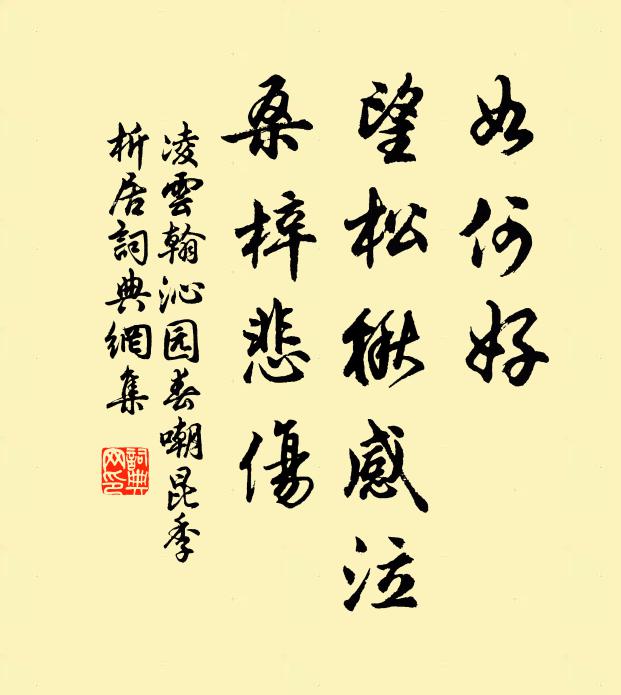 如何好
望松楸感泣
桑梓悲傷
凌雲翰沁园春嘲昆季
析居詞典網集
詞典网印